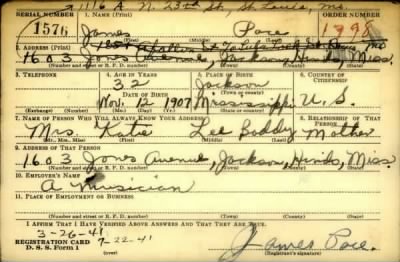 1116 A N. 23rd St, St Louis, Mo.
SERIAL NUMBER 1. NAME (Print) ORDER NUMBER
1576 James Poce 1798
(First) (Middle) (Last)
2. ADDRESS (Print)
1603 Jones Avenue, Jackson, Hinds, Miss.
(Number and street or R. F. D. number) (Town) (County) (State)
3. TELEPHONE 4. AGE IN YEARS 5. PLACE OF BIRTH 6. COUNTRY OF CITIZENSHIP
32 Jackson
DATE OF BIRTH (Town or county)
Nov. 12 1907 Mississippi U. S.
(Exchange) (Number) (Mo.) (Day) (Yr.) (State or country)
7. NAME OF PERSON WHO WILL ALWAYS KNOW YOUR ADDRESS 8. RELATIONSHIP OF THAT PERSON
Mrs. Katie Lee Boddy Mother
(Mr., Mrs., Miss) (First) (Middle) (Last)
9. ADDRESS OF THAT PERSON
1603 Jones Avenue, Jackson, Hinds, Miss.
(Number and street or R. F. D. number) (Town) (County) (State)
10. EMPLOYER'S NAME
A Musician
11. PLACE OF EMPLOYMENT OR BUSINESS
(Number and street or R. F. D. number) (Town) (County) (State)
I AFFIRM THAT I HAVE VERIFIED ABOVE ANSWERS AND THAT THEY ARE TRUE.
3-26-41
REGISTRATION CARD 7-22-41 James Poce.
D. S. S. Form 1 (Registrant's signature)